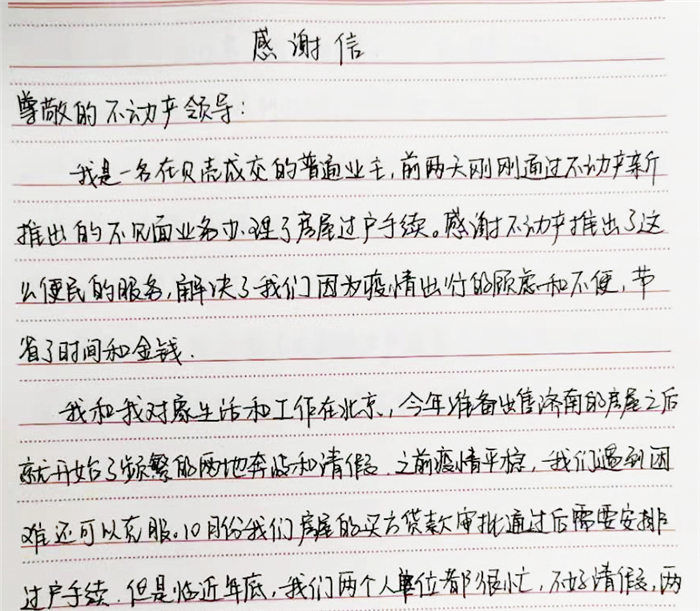 感谢信
尊敬的不动产领导：
我是一名在贝壳成交的普通业主，前两天刚刚通过不动产新
推出的不见面业务办理了房屋过户手续。感谢不动产推出了这
么便民的服务，解决了我们因为疫情出行的顾虑和不便，节
省了时间和金钱.
我和我对象生活和工作在北京，今年准备出售济南的房屋之后
就开始了频繁的两地奔波和请假.之前疫情平稳，我们遇到困
难还可以克服。10月份我们房屋的买方贷款审批通过后需要安排
过户手续.但是临近年底，我们两个人单位都很忙，不好请假，两